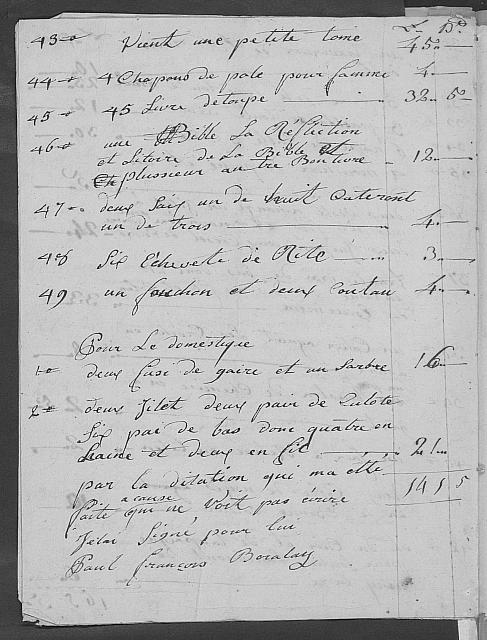 L. D.
43 vient une petite tome 45
44 4 Chapaud de pale pour famme 4
45 45 Livre detoupe 32 5
46 une Bible La Reflection
et Litoire de La Bible et
plussieur autre Bon livre 12
47 deux un de huit
un de trois 4
48 Six Echevete de Rite 3
49 un fouchon et deux Coutau 4
Pour Le domestique
1 deux fusi de gaire et un Sarbre 16
2 deux Jilet deux pair de Culote
Six pai de bas donc quatre en
Laine et deux en fil 21
par la ditation qui ma ette 141 5
a cause
faite qui ne Voit pas écrire
Jelai Signé pour lui
Paul françois